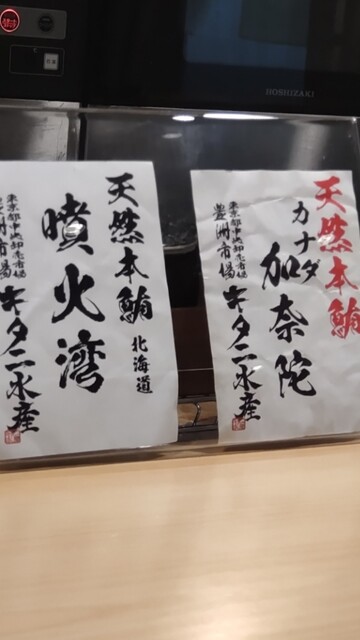 HOSHIZAKI
天然本鮪
カナダ
加奈陀
東京都中央卸売市場
豊洲市場
キタニ水産
天然本鮪
北海道
噴火湾
東京都中央卸売市場
豊洲市場
キタニ水産